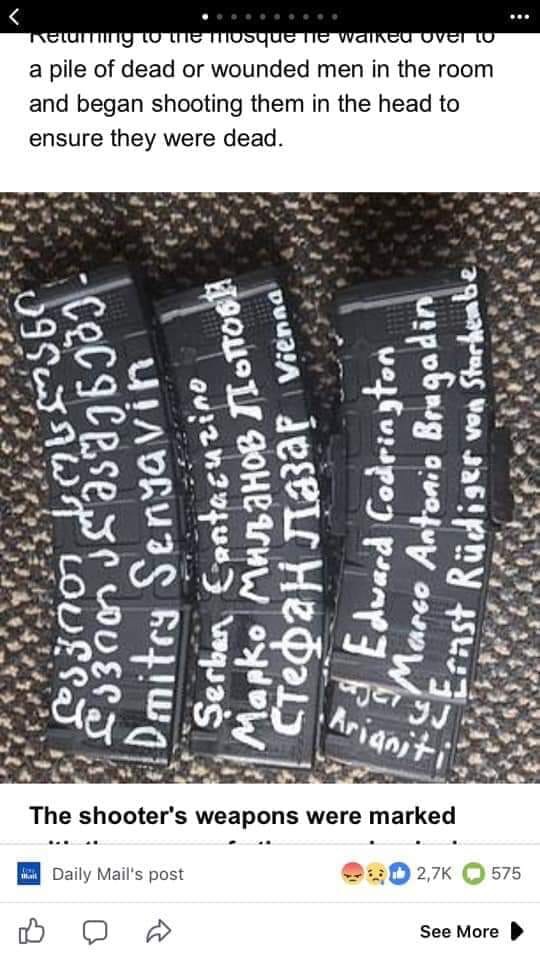 Returning to the mosque he walked over to
a pile of dead or wounded men in the room
and began shooting them in the head to
ensure they were dead.
Dmitry Senyavin
Šerban Cantacuzino
Марко Миљанов Поповић
Стефан Лазар Vienna
Edward Codrington
Marco Antonio Bragadin
Ernst Rüdiger von Starhembe
Arianiti
The shooter's weapons were marked
Daily Mail's post
2,7K
575
See More